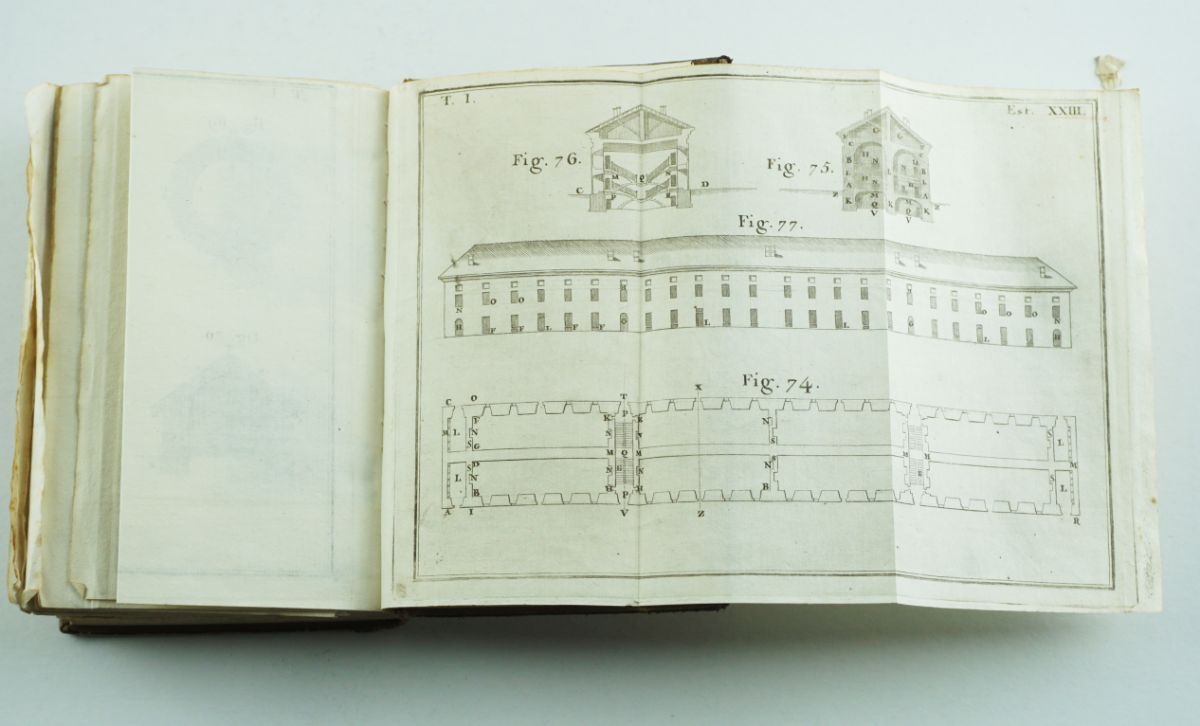 T. I.
Est. XXIII.
Fig. 76.
Fig. 75.
C
M
Q
D
G
G
C
B
H
N
B
A
H
N
L
A
Z
K
M
Q
V
K
M
Q
V
K
Z
Fig. 77.
N
O
O
M
O
O
O
N
H
F
F
L
F
F
G
L
L
G
L
H
Fig. 74.
X
C
O
T
M
L
S
F
N
G
K
N
M
H
P
Q
E
P
K
N
M
N
H
N
S
S
N
B
L
S
D
N
B
A
I
V
Z
M
M
E
S
L
M
S
L
R